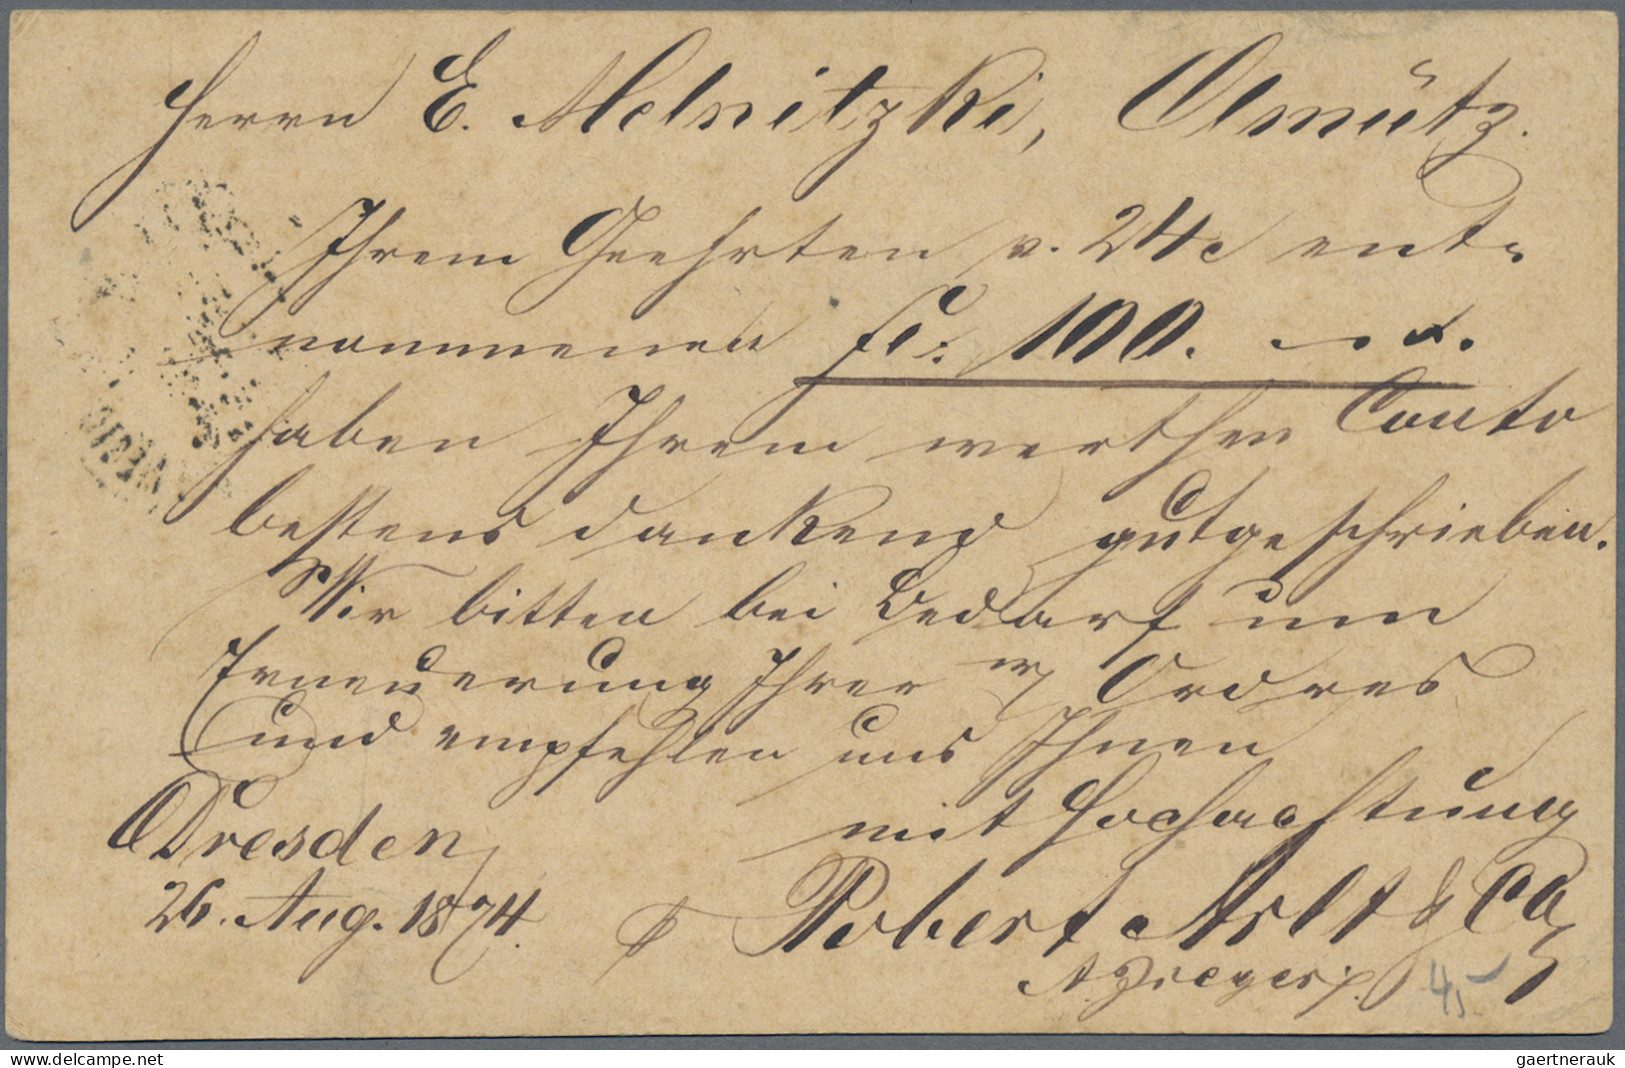 Herrn E. Melnitzki, Olmütz.
Ihrem Geehrten v. 24c ent-
nommenen fl: 100. —.
haben Ihrem werthen Conto
bestens dankend gutgeschrieben.
Wir bitten bei Bedarf um
Erneuerung Ihrer Ordres
und empfehlen uns Ihnen
mit Hochachtung
Dresden,
26. Aug. 1874.
Robert Arlt & Co
A. Dreyer
45-
www.delcampe.net
gaertnerauk